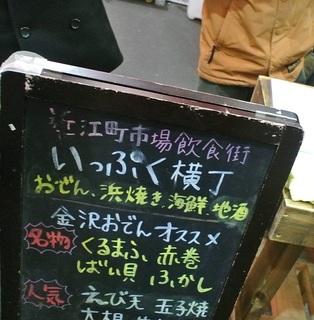 近江町市場飲食街
いっぷく横丁
おでん、浜焼き、海鮮、地酒
金沢おでん オススメ
名物 くるまふ、赤巻
ばい貝 ふかし
人気 えび天 玉子焼
大根